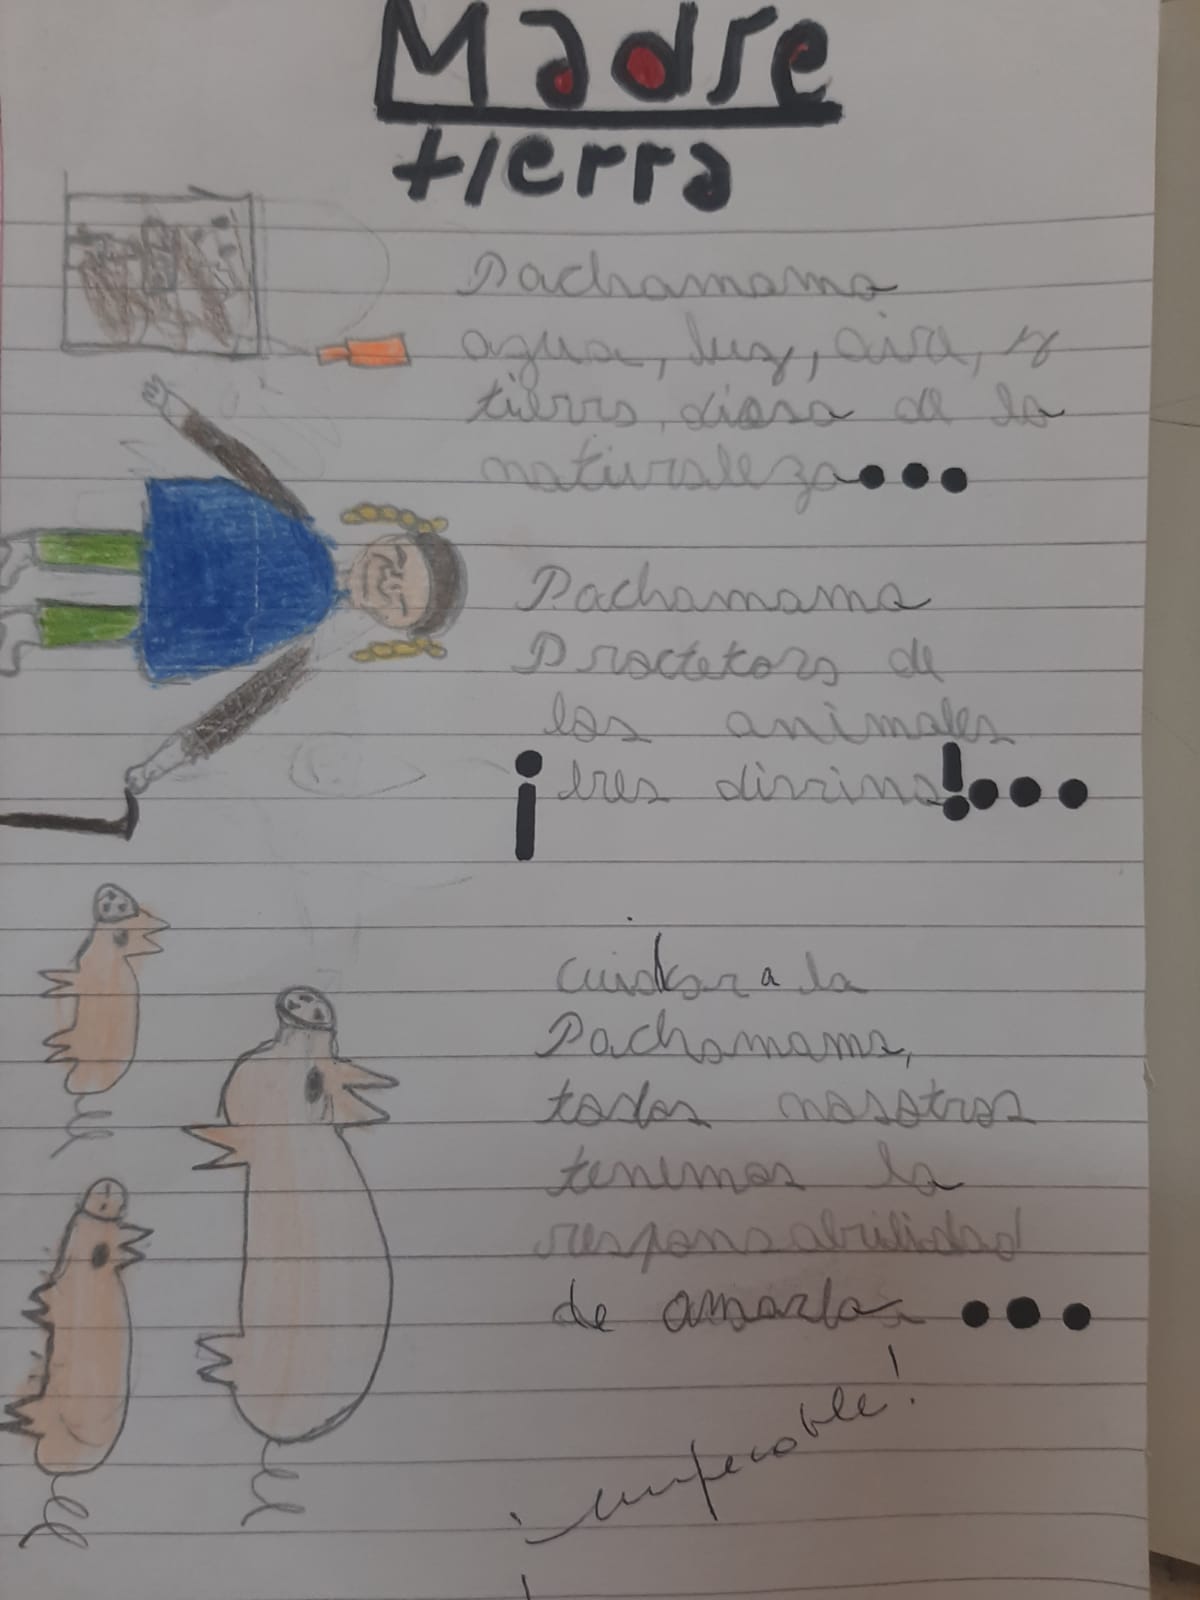 Madre
tierra
Pachamama
agua, luz, aire, y
tierra, diosa de la
naturaleza...
Pachamama
Proctetora de
los animales
¡eres divina!...
cuidar a la
Pachamama,
todos nosotros
tenemos la
responsabilidad
de amarla...
¡impecable!